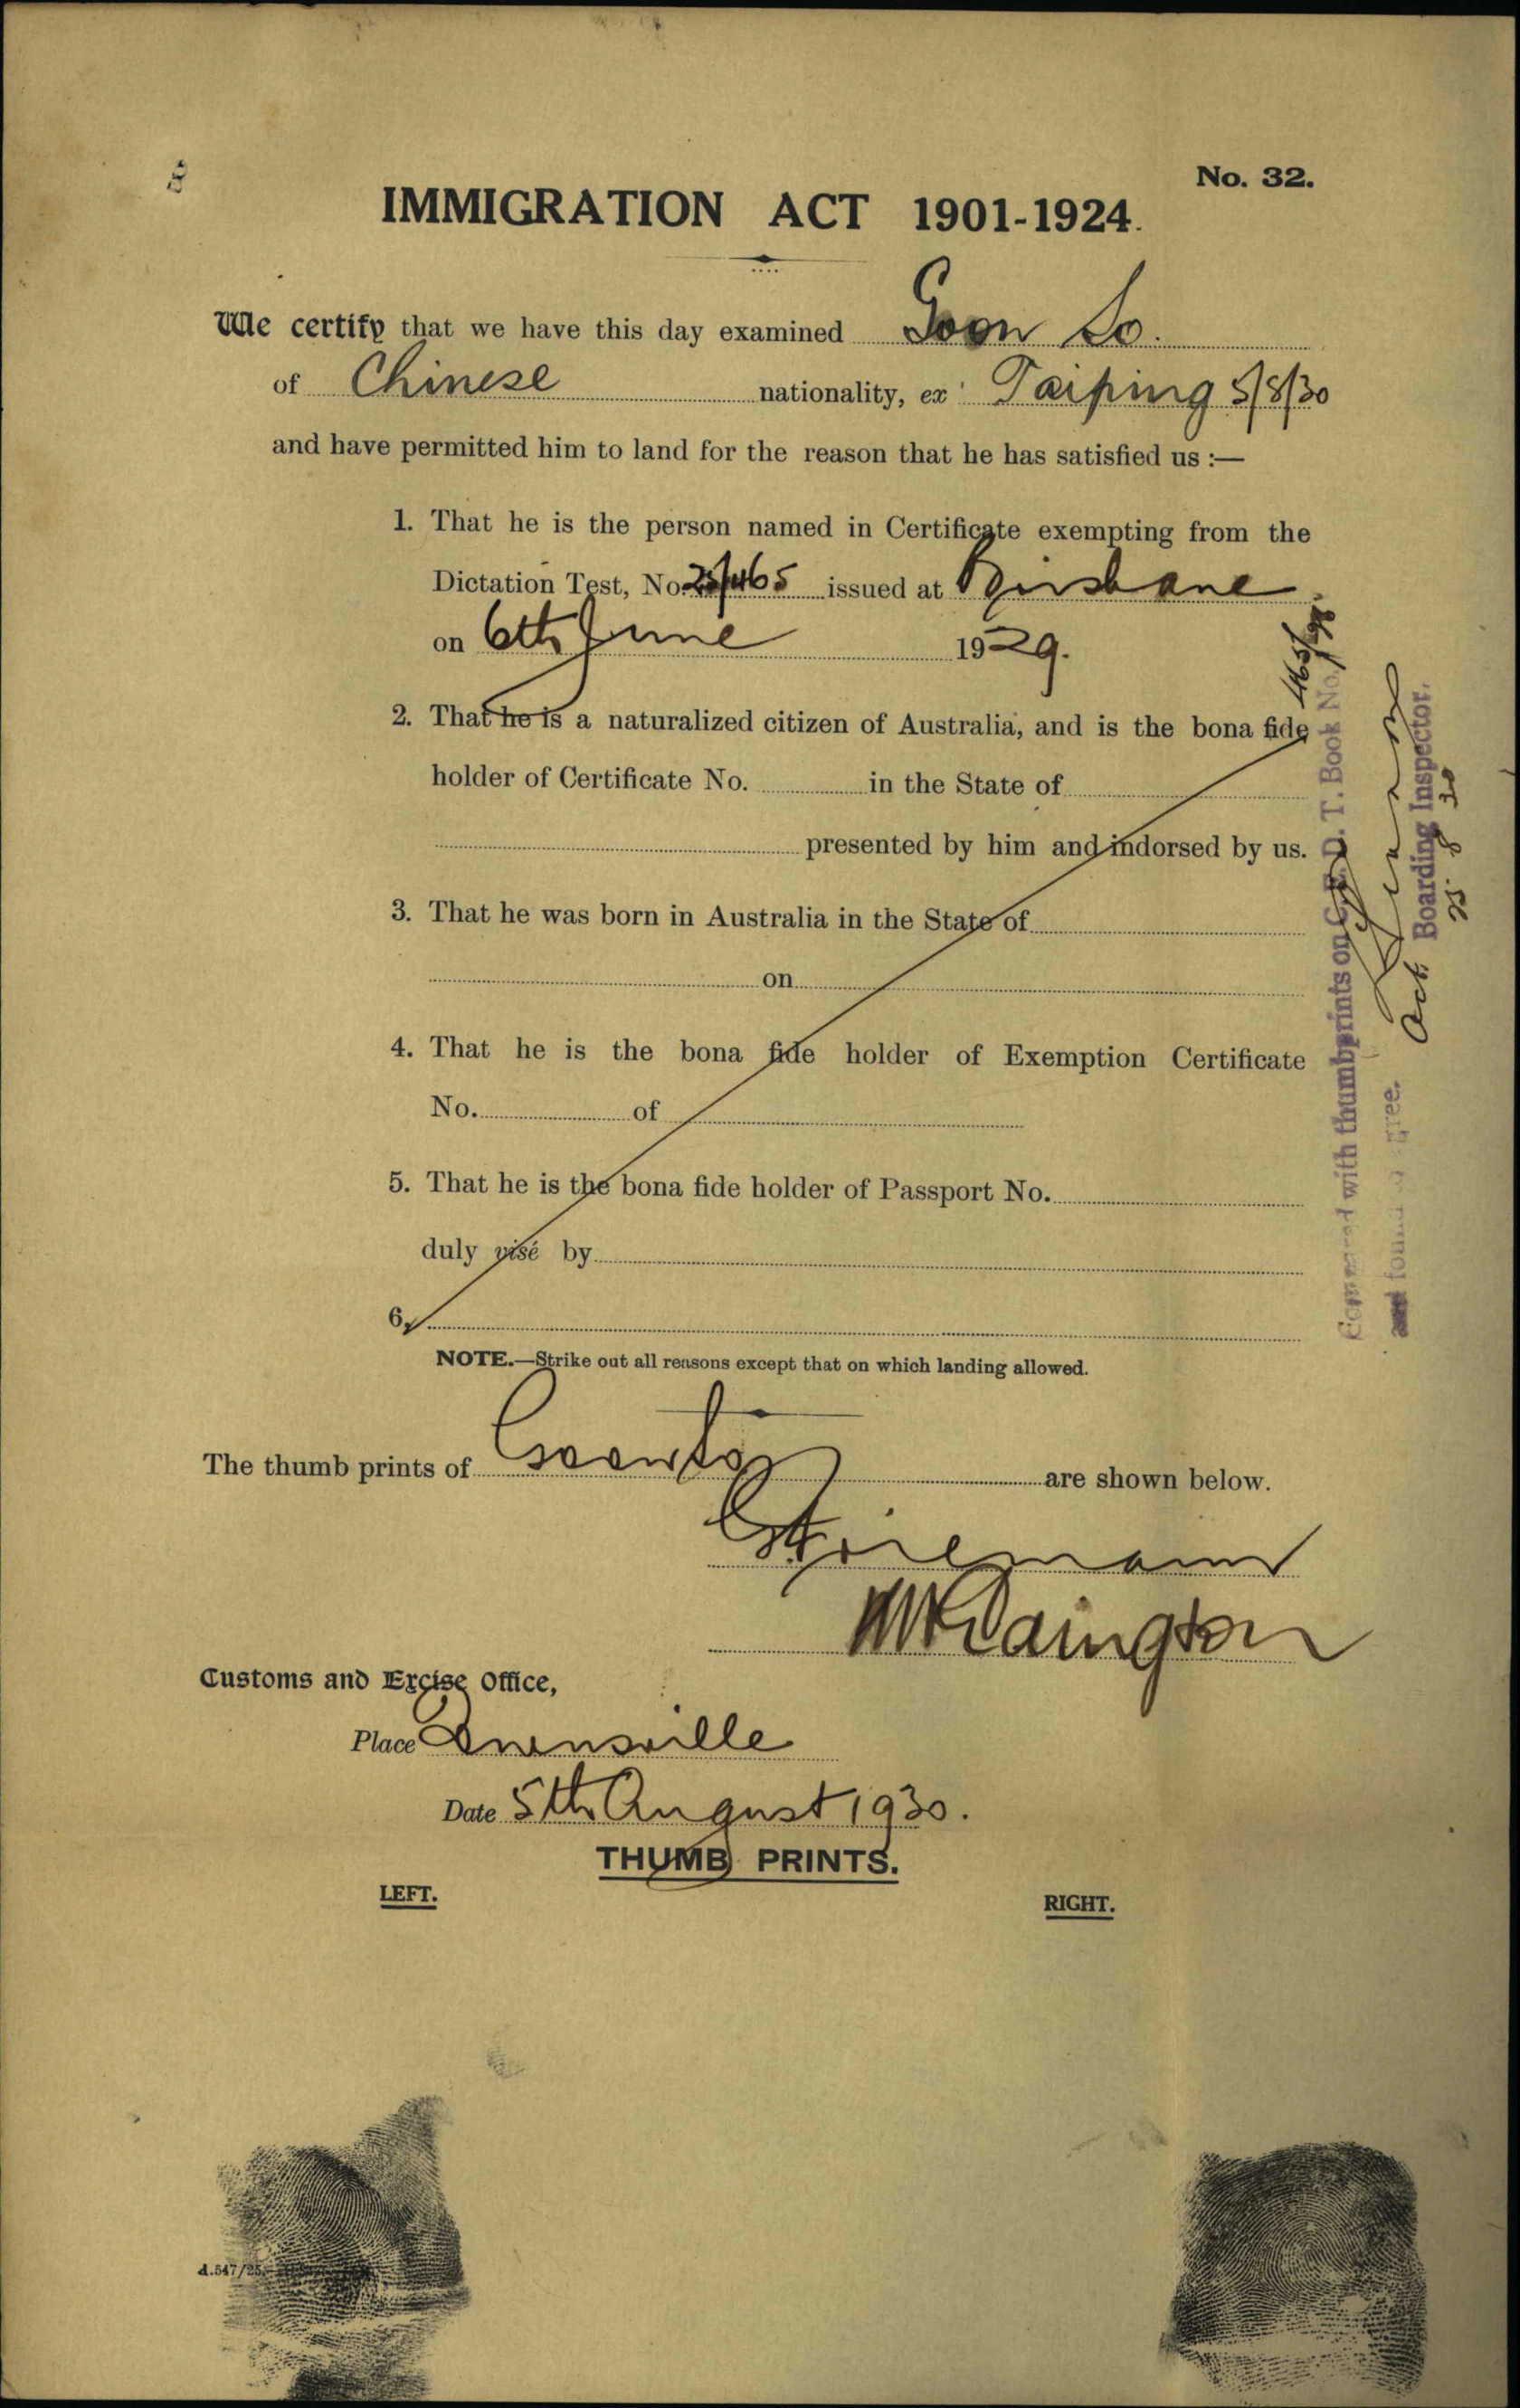 No. 32.
IMMIGRATION ACT 1901-1924.
We certify that we have this day examined Goon So.
of Chinese nationality, ex Taiping 5/8/30
and have permitted him to land for the reason that he has satisfied us :—
1. That he is the person named in Certificate exempting from the
Dictation Test, No. /465 issued at Brisbane
on 6th June 1929.
2. That he is a naturalized citizen of Australia, and is the bona fide
holder of Certificate No. in the State of
presented by him and indorsed by us.
3. That he was born in Australia in the State of
on
4. That he is the bona fide holder of Exemption Certificate
No. of
5. That he is the bona fide holder of Passport No.
duly visé by
6.
NOTE.—Strike out all reasons except that on which landing allowed.
The thumb prints of Goon So are shown below.
Customs and Excise Office,
Place Townsville
Date 5th August 1930.
THUMB PRINTS.
LEFT. RIGHT.
A.547/25.
Compared with thumbprints on C.E.D.T. Book No. 465/98
and found to agree.
Act. Boarding Inspector.
25 8 30